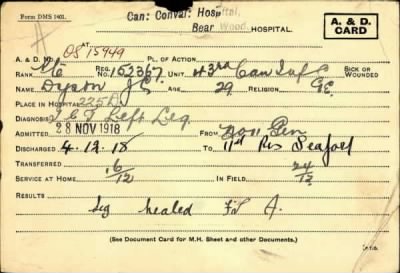 Form DMS 1401.
Can: Conval: Hospital,
Bear Wood. HOSPITAL.
A. & D. CARD
AT
A. & D. NO. 0815949 PL. OF ACTION
RANK Pte REG. NO. 152367 UNIT 43rd Can Inf SICK OR WOUNDED
NAME Dyson J. AGE 29 RELIGION CE.
PLACE IN HOSPITAL 225D
DIAGNOSIS Left Leg
ADMITTED 28 NOV 1918 FROM Gen
DISCHARGED 4.12.18 TO 11th Res Seaford
TRANSFERRED
SERVICE AT HOME 6/12 IN FIELD 24/12
RESULTS Leg healed Fit A.
(See Document Card for M.H. Sheet and other Documents.)